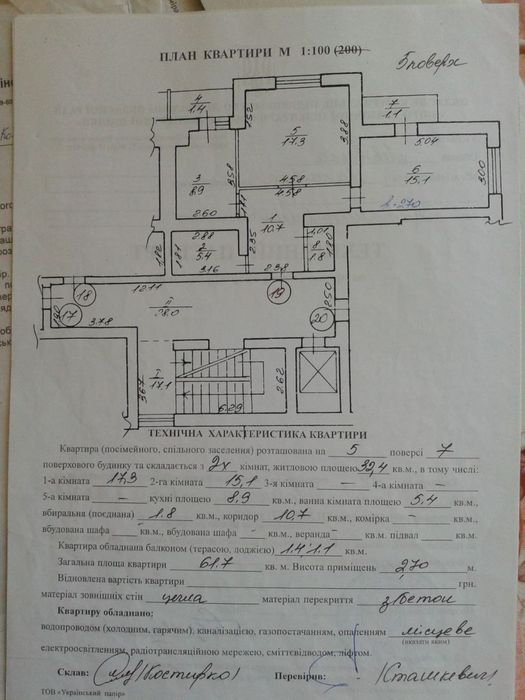 ПЛАН КВАРТИРИ М 1:100 (200)
5 поверх
4
1.4
7
1.1
1.52
5
17.3
3.88
5.04
6
15.1
3.00
h=2.70
3
8.9
3.58
4.58
4.58
2.60
1
10.7
2.88
1.81
2
5.4
3.16
1.82
2.35
2.38
1.01
8
1.8
1.80
12.11
18
17
19
20
2.50
1.40
3.78
II
28.0
I
17.1
3.67
6.29
2.62
ТЕХНІЧНА ХАРАКТЕРИСТИКА КВАРТИРИ
Квартира (посімейного, спільного заселення) розташована на 5 поверсі 7
поверхового будинку та складається з 2х кімнат, житловою площею 32,4 кв.м., в тому числі:
1-а кімната 17,3 2-га кімната 15,1 3-я кімната — 4-а кімната —
5-а кімната — кухні площею 8,9 кв.м., ванна кімната площею 5,4 кв.м.,
вбиральня (поєднана) 1.8 кв.м., коридор 10,7 кв.м., комірка - кв.м.,
вбудована шафа — кв.м., вбудована шафа - кв.м., веранда - кв.м. підвал кв.м.
Квартира обладнана балконом (терасою, лоджією) 1.4; 1.1 кв.м.
Загальна площа квартири 61.7 кв. м. Висота приміщень 2,70 м.
Відновлена вартість квартири грн.
матеріал зовнішніх стін цегла матеріал перекриття з/бетон
Квартиру обладнано:
водопроводом (холодним, гарячим). каналізацією, газопостачанням, опаленням місцеве
(вказати яким)
електроосвітленням, радіотрансляційною мережею, сміттєвідводом, ліфтом.
Склав: (Костирко) Перевірив: (Сташкевич)
ТОВ «Український папір»